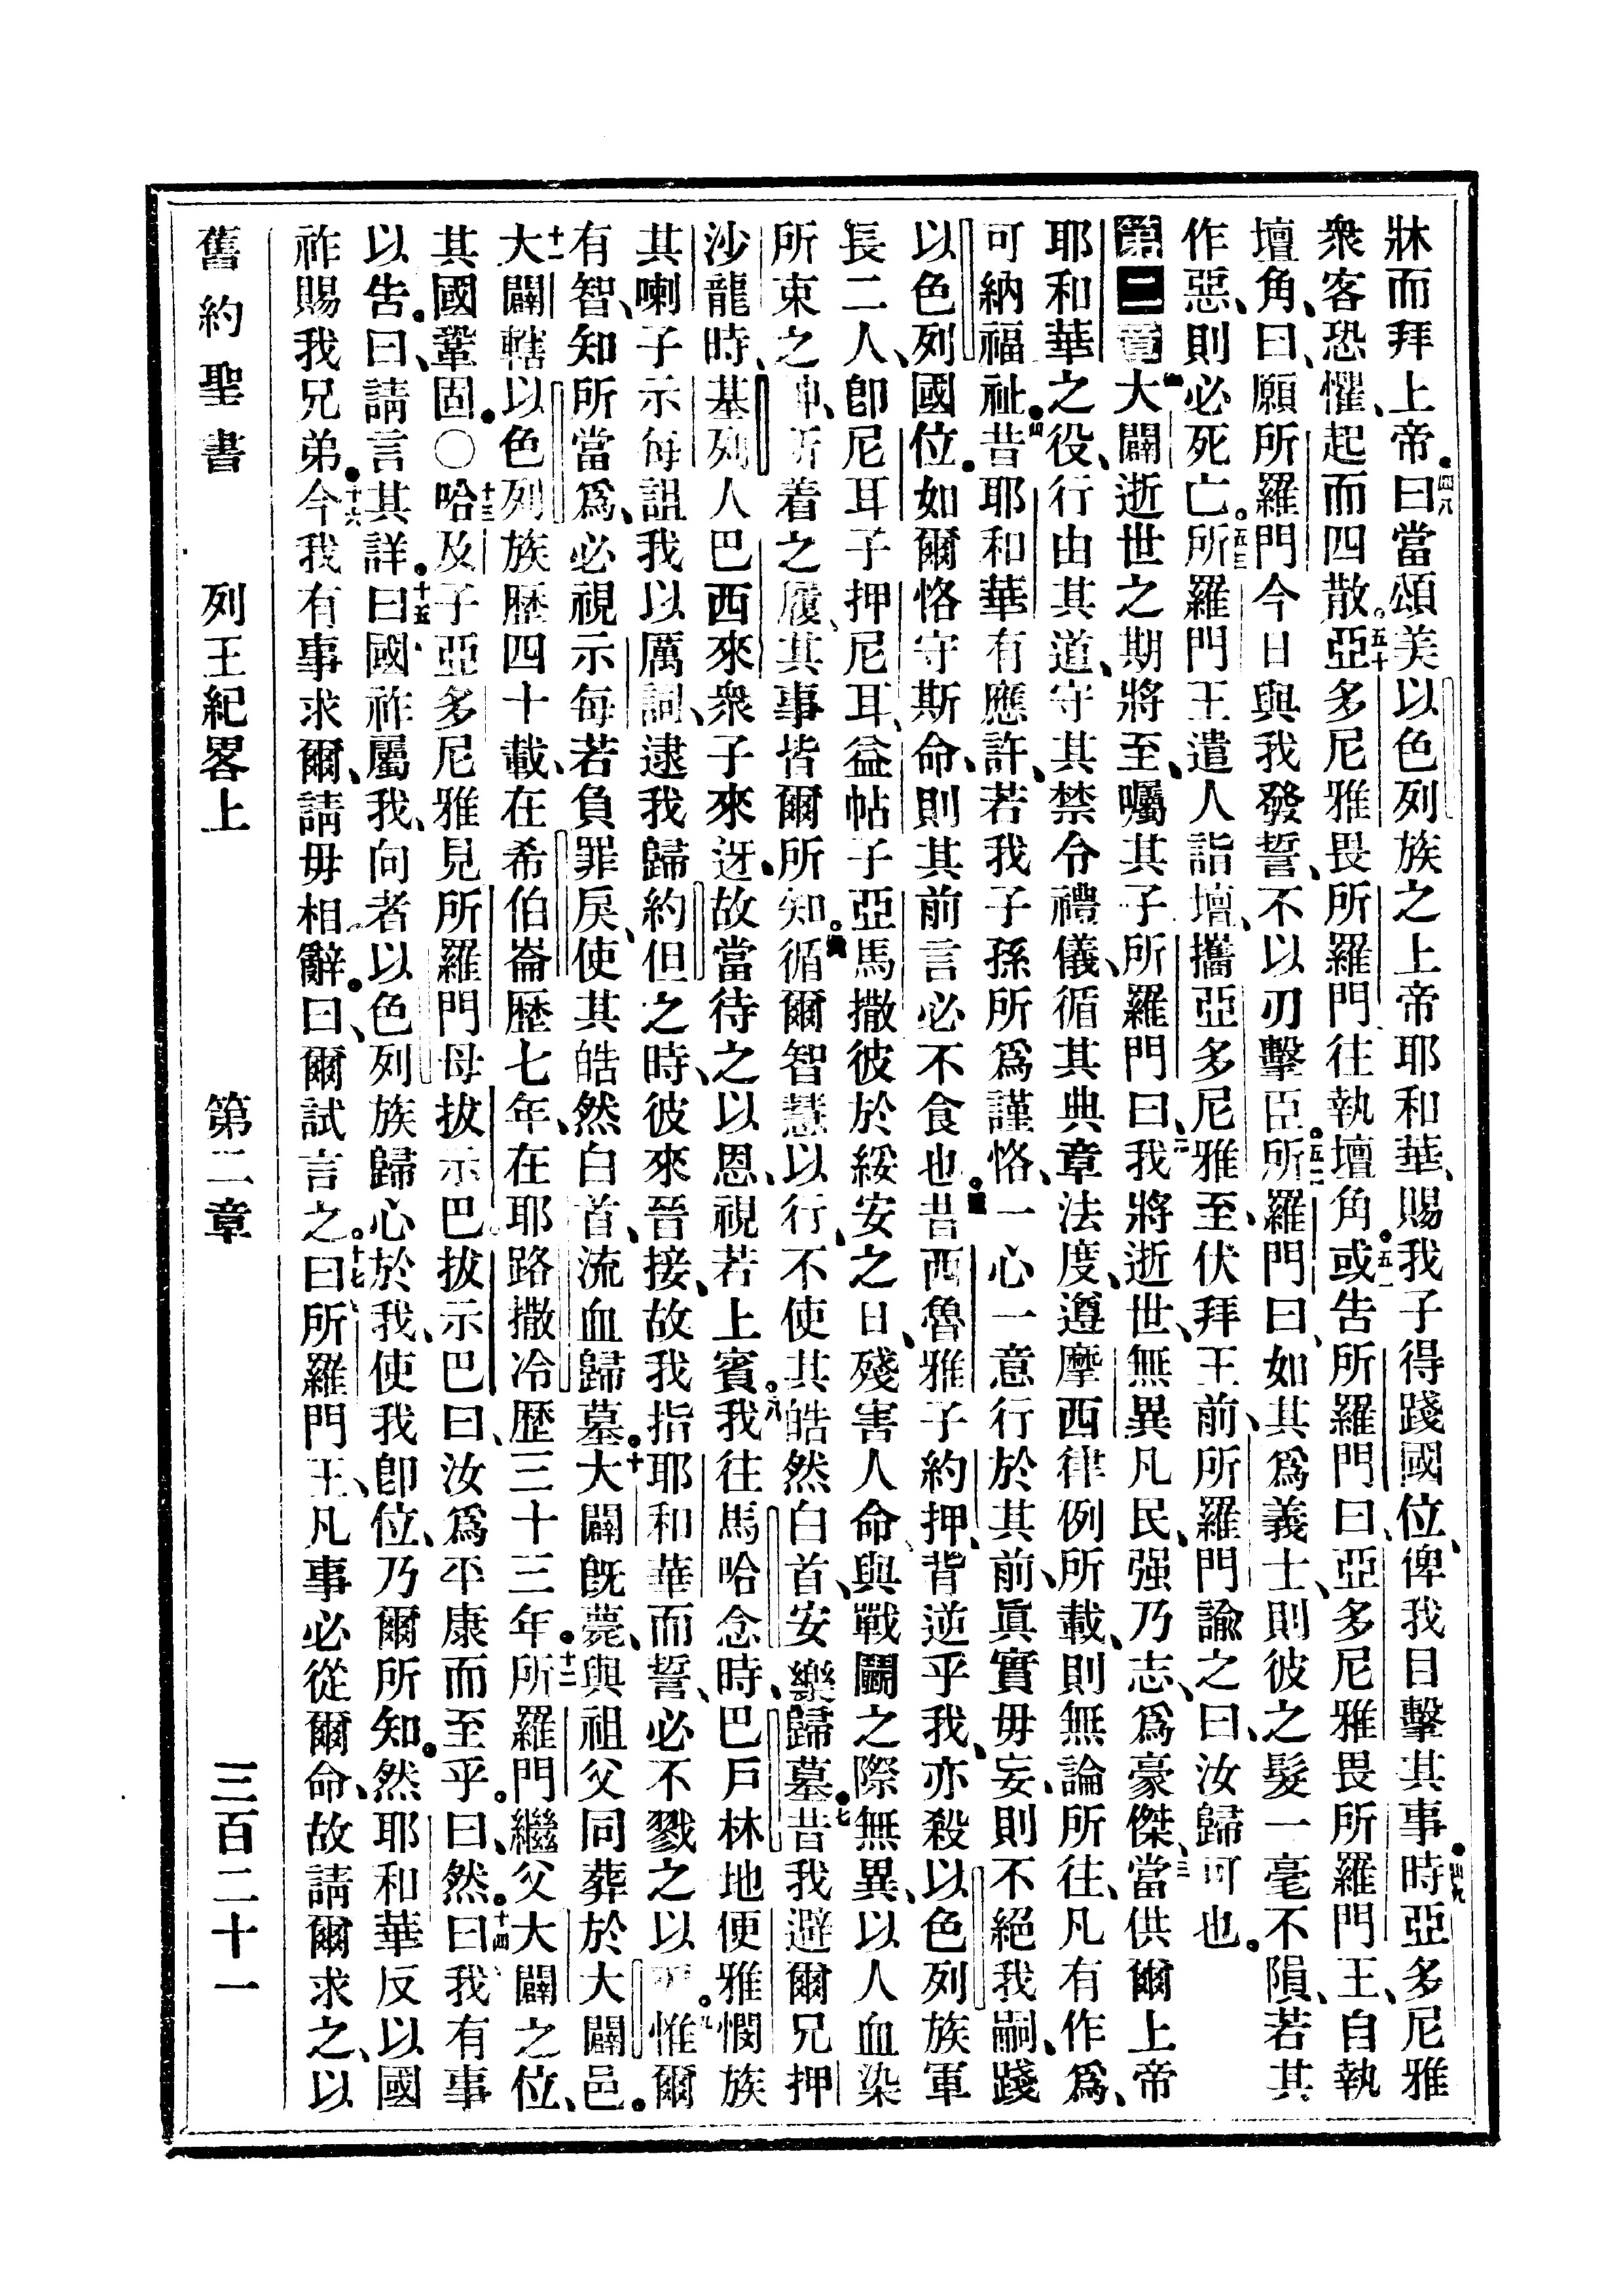 牀而拜上帝。四八曰當頌美以色列族之上帝耶和華、賜我子得踐國位、俾我目擊其事。四九時亞多尼雅
衆客恐懼、起而四散。五十亞多尼雅畏所羅門往執壇角。五一或告所羅門曰、亞多尼雅畏所羅門王、自執
壇角、曰、願所羅門今日與我發誓、不以刃擊臣。五二所羅門曰、如其爲義士、則彼之髮一毫不隕、若其
作惡、則必死亡。五三所羅門王遣人詣壇、攜亞多尼雅至、伏拜王前、所羅門諭之曰、汝歸可也。
第二章 大闢逝世之期將至、囑其子所羅門曰、二我將逝世、無異凡民、强乃志、爲豪傑、三當供爾上帝
耶和華之役、行由其道、守其禁令禮儀、循其典章法度、遵摩西律例所載、則無論所往、凡有作爲、
可納福祉。四昔耶和華有應許、若我子孫所爲謹恪、一心一意行於其前、眞實毋妄、則不絕我嗣、踐
以色列國位。如爾恪守斯命、則其前言必不食也。五昔西魯雅子約押、背逆乎我、亦殺以色列族軍
長二人、卽尼耳子押尼耳、益帖子亞馬撒彼於綏安之日、殘害人命、與戰鬭之際無異、以人血染
所束之紳、所着之履、其事皆爾所知。六循爾智慧以行、不使其皓然白首、安樂歸墓。七昔我避爾兄押
沙龍時、基列人巴西來衆子來迓、故當待之以恩、視若上賓。八我往馬哈念時、巴戶林地便雅憫族
其喇子示每詛我以厲詞、逮我歸約但之時、彼來晉接、故我指耶和華而誓、必不戮之以。九惟爾
有智、知所當爲、必視示每若負罪戾、使其皓然白首、流血歸墓。十大闢旣薨、與祖父同葬於大闢邑。
十一大闢轄以色列族歷四十載、在希伯崙歷七年、在耶路撒冷歷三十三年。十二所羅門繼父大闢之位、
其國鞏固。〇十三哈及子亞多尼雅見所羅門母拔示巴。拔示巴曰、汝爲平康而至乎。曰、然。十四曰、我有事
以告。曰、請言其詳。十五曰、國祚屬我、向者以色列族歸心於我、使我卽位、乃爾所知。然耶和華反以國
祚賜我兄弟。十六今我有事求爾、請毋相辭。曰、爾試言之。十七曰、所羅門王、凡事必從爾命、故請爾求之、以
舊約聖書 列王紀畧上 第二章 三百二十一